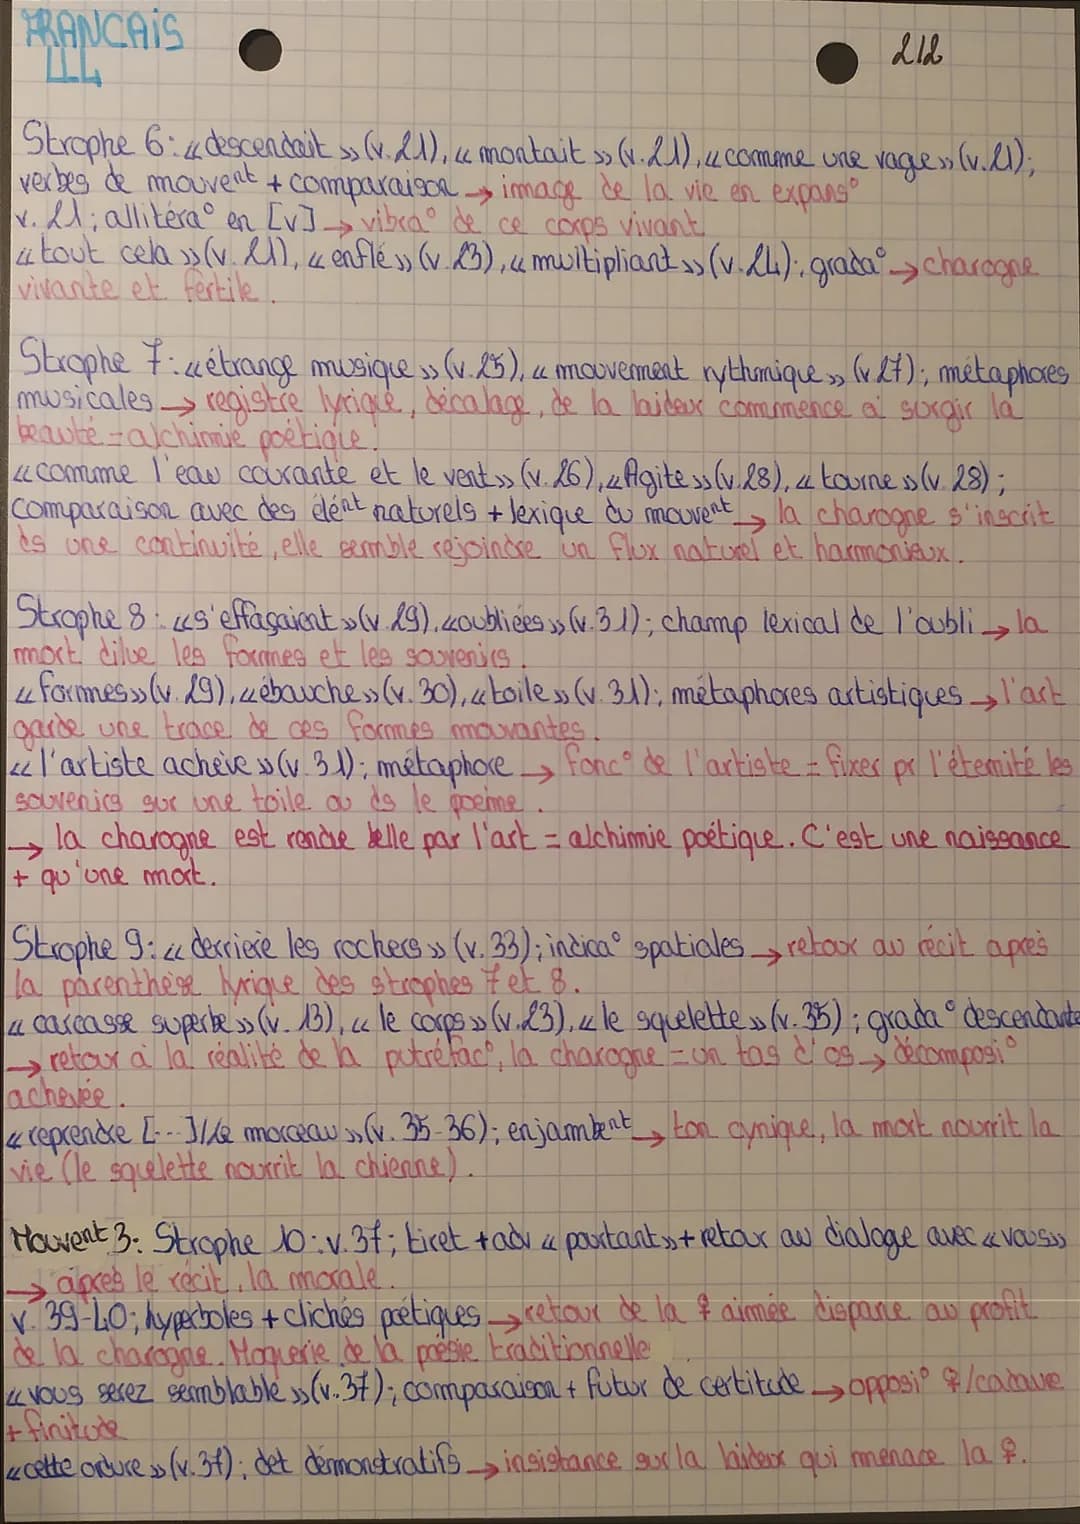 FRANCAIS
LLL
212
Strophe 6: « descendait » (v.21), « montait » (v.21), « comme une vage » (v.21);
verbes de mouvent + comparaison → image de la vie en expans°
v. 21; allitéra° en [v] → vibra° de ce corps vivant
« tout cela » (v.21), « enflé » (v.23), « multipliant » (v.24); grada° → charogne
vivante et fertile.
Strophe 7: « étrange musique » (v.25), « mouvement rythmique » (v.27); métaphores
musicales → registre lyrique, décalage, de la laideur commence à surgir la
beauté = alchimie poétique.
« comme l'eau courante et le vent » (v.26), « Agite » (v.28), « tourne » (v.28);
comparaison avec des élént naturels + lexique du mouvent → la charogne s'inscrit
ds une continuité, elle semble rejoindre un flux naturel et harmonieux.
Strophe 8: « s'effaçaient » (v.29), « oubliées » (v.31); champ lexical de l'oubli → la
mort dilue les formes et les souvenirs.
« formes » (v.29), « ébauche » (v.30), « toile » (v.31); métaphores artistiques → l'art
garde une trace de ces formes mouvantes.
« l'artiste achève » (v.31); métaphore → fonc° de l'artiste = fixer pr l'éternité les
souvenirs sur une toile ou ds le poème.
→ la charogne est rendue belle par l'art = alchimie poétique. C'est une naissance
+ qu'une mort.
Strophe 9: « derrière les rochers » (v.33); indica° spatiales → retour au récit après
la parenthèse lyrique des strophes 7 et 8.
« carcasse superbe » (v.13), « le corps » (v.23), « le squelette » (v.35); grada° descendante
→ retour à la réalité de la putréfac°, la charogne = un tas d'os → décomposi°
achevée.
« reprendre [...]/Le morceau » (v.35-36); enjambent → ton cynique, la mort nourrit la
vie (le squelette nourrit la chienne).
Mouvent 3: Strophe 10: v.37; tiret + adv « pourtant » + retour au dialoge avec « vous »
→ après le récit, la morale.
v. 39-40; hyperboles + clichés poétiques → retour de la ♀ aimée dispane au profit
de la charogne. Moquerie de la poésie traditionnelle
« vous serez semblable » (v.37); comparaison + futur de certitude → opposi° ♀/cadavre
+ finitude
« cette ordure » (v.37); det démonstratifs → insistance sur la laideur qui menace la ♀.